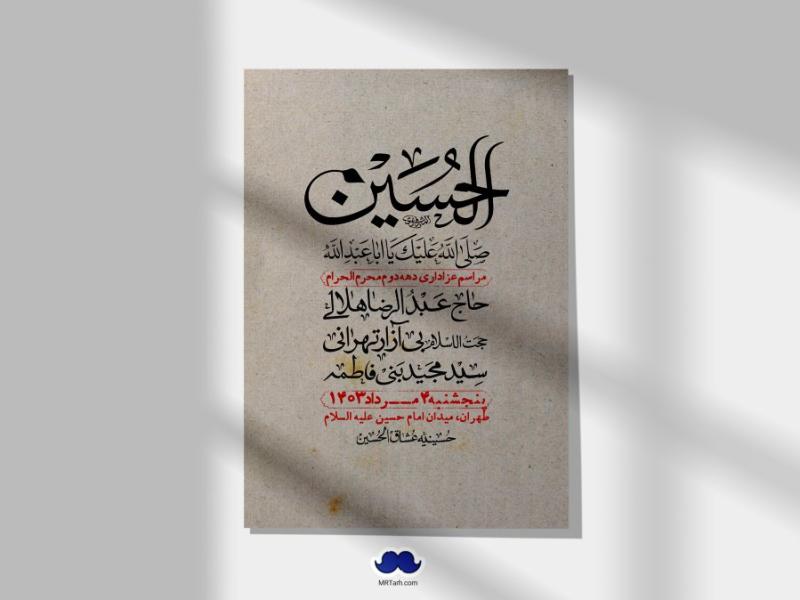 الحسین
صَلَی اللهُ عَلَیْكَ یَا اَبا عَبْدِ الله
مراسم عزاداری دهه دوم محرم الحرام
حاج عَبْدُ الرضا هلالی
حجت الاسلام بی آزار تهرانی
سید مجید بنی فاطمه
پنجشنبه ۴ مرداد ۱۴۰۳
طهران، میدان امام حسین علیه السلام
حسینیه عشاق الحسین
MRTarh.com